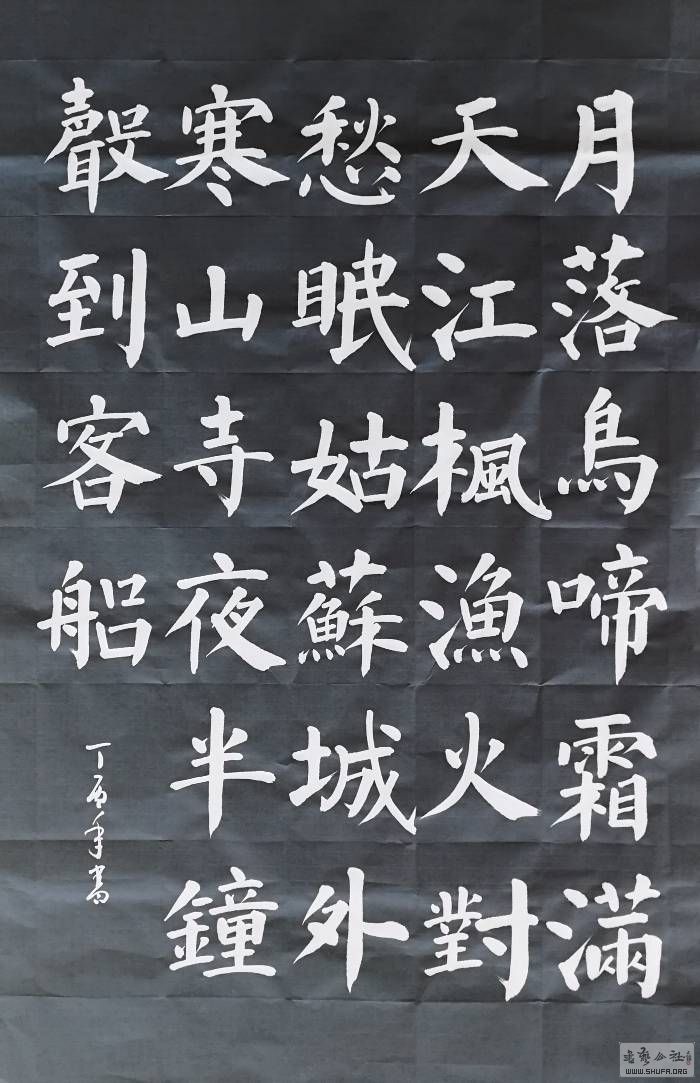 月落鳥啼霜滿
天江楓漁火對
愁眠姑蘇城外
寒山寺夜半鐘
聲到客船
丁酉年書
书藝公社
WWW.SHUFA.ORG